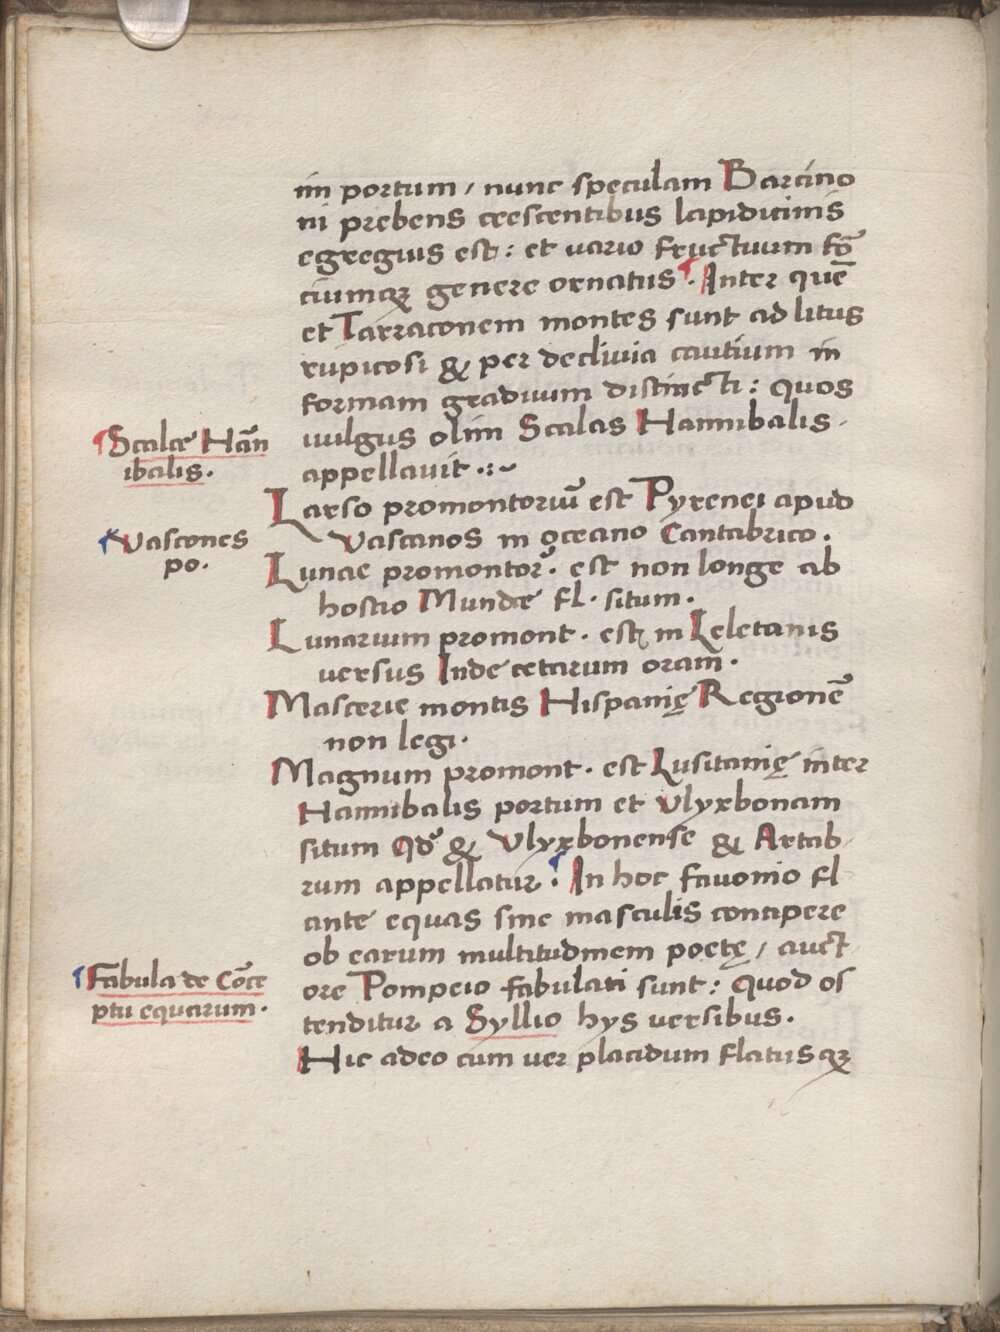 im portum / nunc speculam Barcino
ni prebens crescentibus lapidicinis
egregius est : et vario fructuum fō
ciumqꝫ genere ornatus . Inter quē
et Tarraconem montes sunt ad litus
rupicosi & per declivia cautium in
formam graduum distincti : quos
uulgus olim Scalas Hannibalis .
appellavit .:~
Scalæ Hān
ibalis .
Larso promontoriū est Pyrenei apud
Vascanos in oceano Cantabrico .
Vascones
po .
Lunae promontor̄ . est non longe ab
hostio Mundæ fl . situm .
Lunarium promont . est in Leletanis
versus Inde cetarum oram .
Mascerie montis Hispanię Regionē
non legi .
Magnum promont . est Lusitanię inter
Hannibalis portum et Vlyxbonam
situm Qd̄ & Vlyxbonense & Artab
rum appellatur . In hoc favonio fl
ante equas sine masculis concipere
ob earum multitudinem poetę / auct
ore Pompeio fabulati sunt : Quod os
tenditur a Syllio hys versibus .
Fabula de Cōce
ptu equarum .
Hic adeo cum ver placidum flatusqꝫ